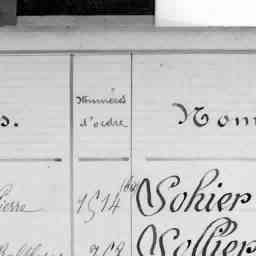 Numéros
d'ordre
s.
Nom
Pierre
1514 bis
Sohier
Sollier